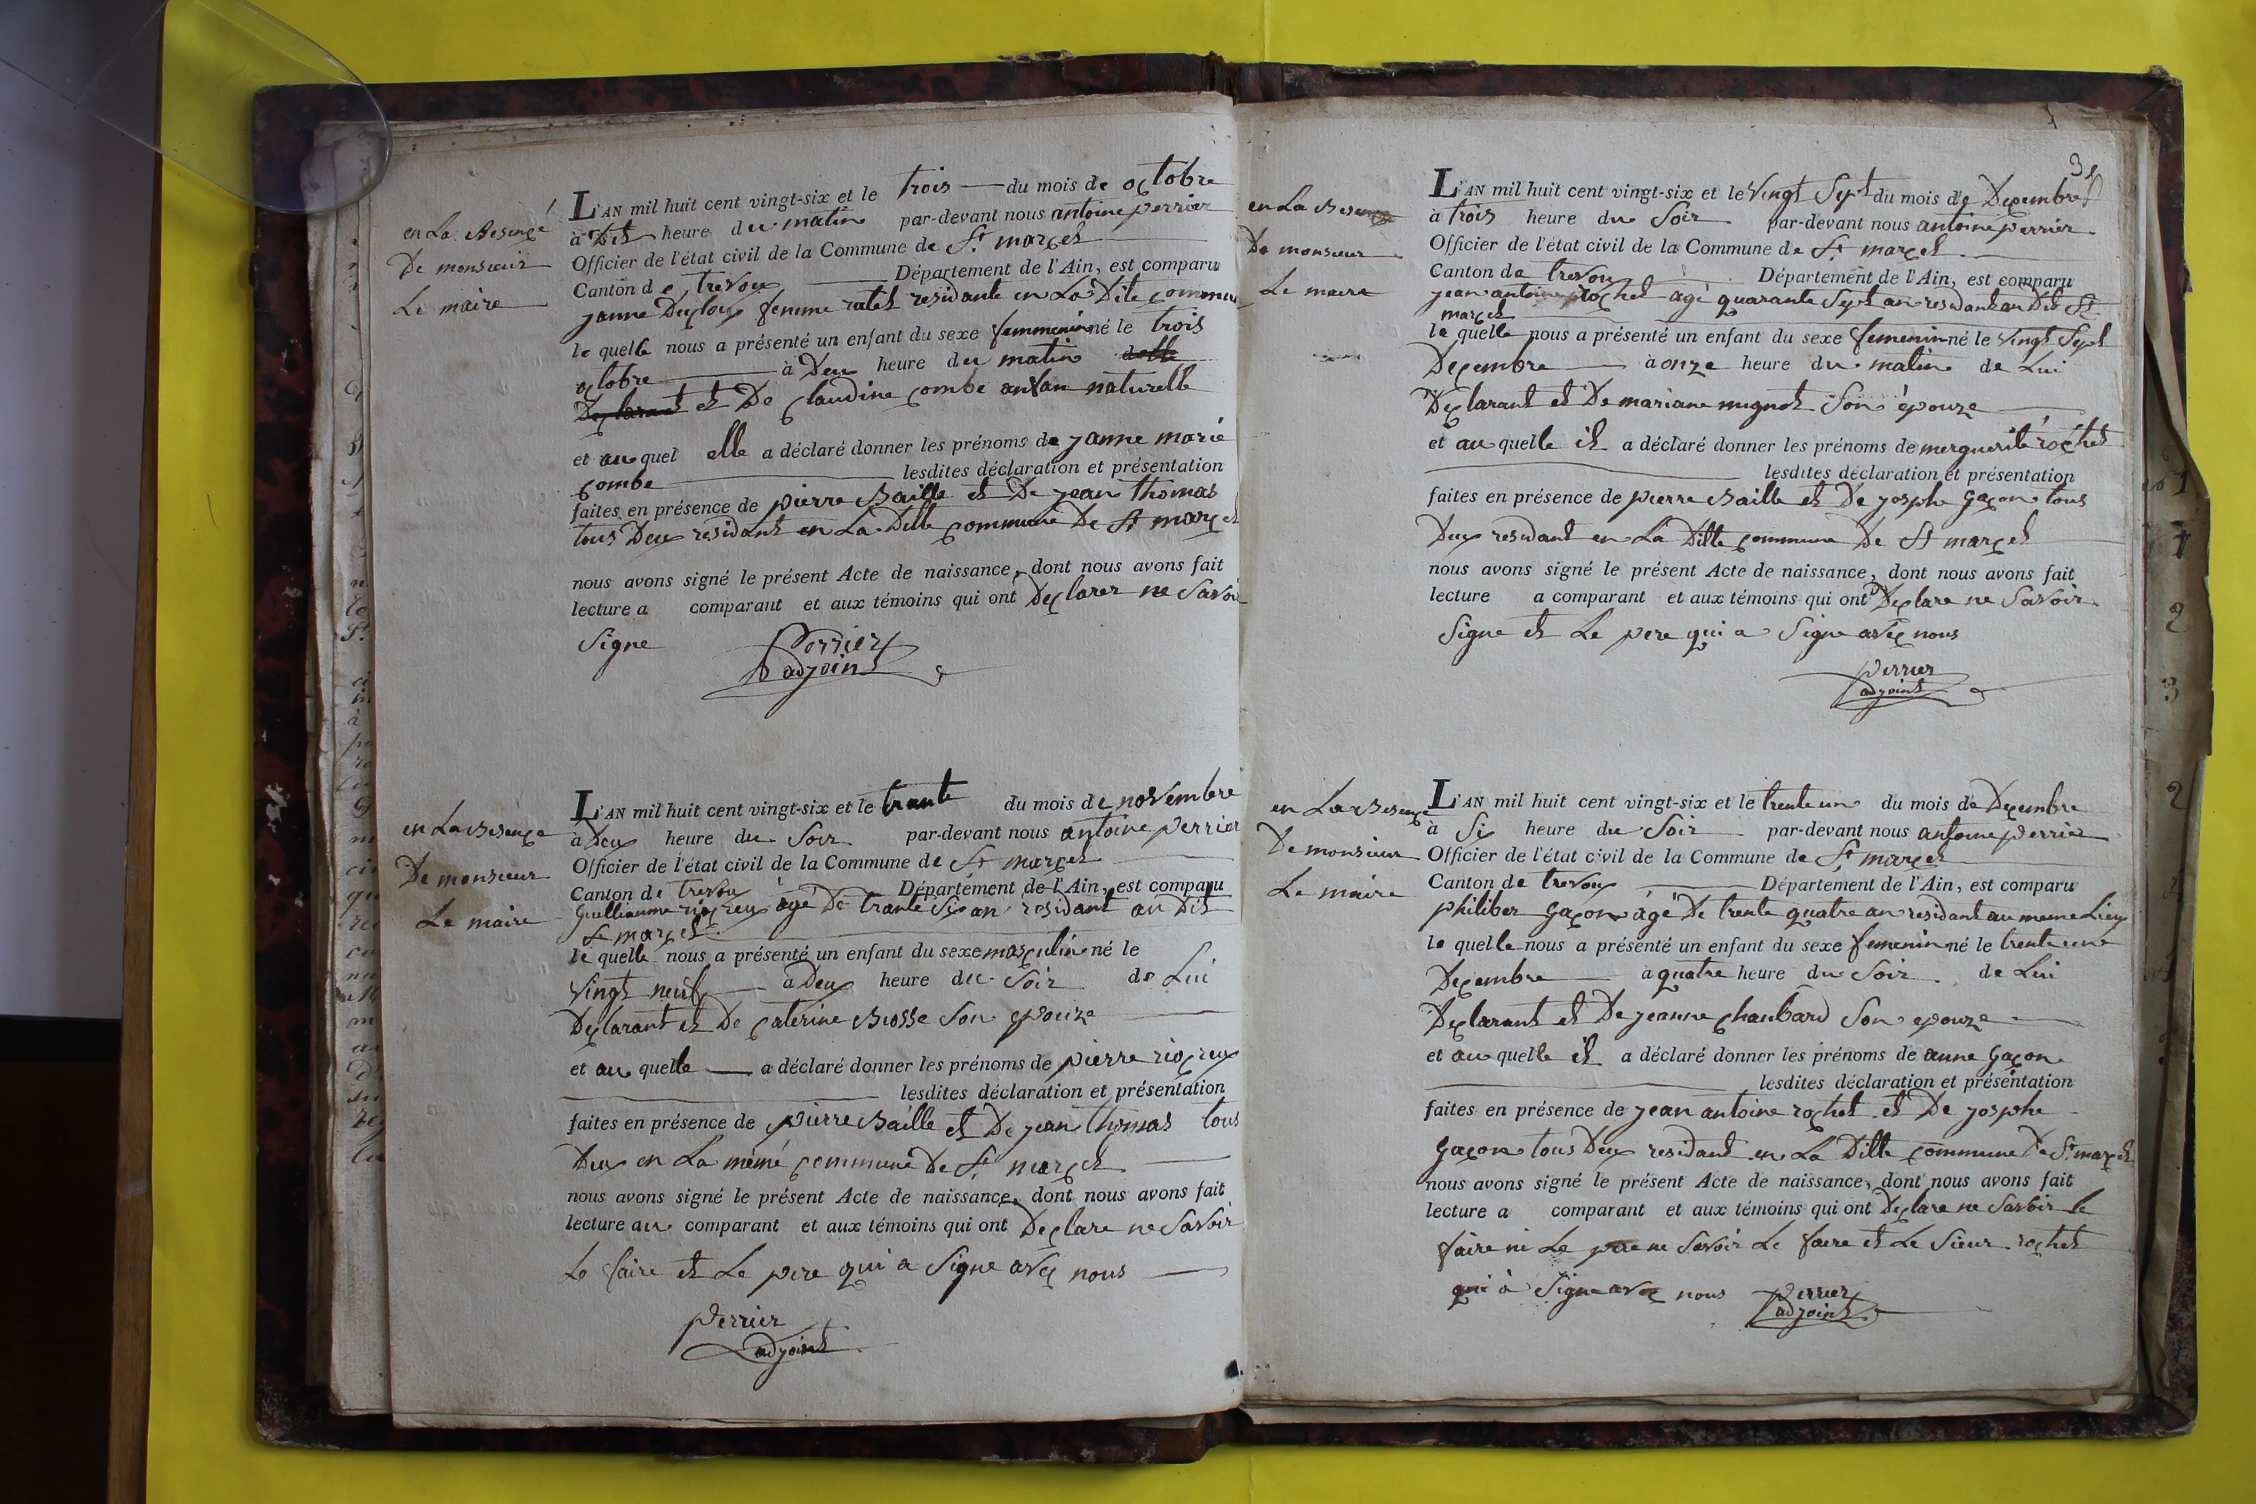 en La Besençe
De monsieur
Le maire
L'AN mil huit cent vingt-six et le trois du mois de octobre
à Dix heure du matin par-devant nous antoine perrier
Officier de l'état civil de la Commune de St marcel
Canton de trevoux Département de l'Ain, est comparu
janne Duclous femme ratel residante en La Dite commune
le quelle nous a présenté un enfant du sexe femmenin né le trois
octobre à Deux heure du matin delle
Declarant et De claudine combe anfan naturelle
et au quel elle a déclaré donner les prénoms de janne marie
combe lesdites déclaration et présentation
faites en présence de pierre Baille et De jean thomas
tous Deux residant en La Ditte commune De St marcel
nous avons signé le présent Acte de naissance, dont nous avons fait
lecture a comparant et aux témoins qui ont Declarer ne Savoir
Signe
Perrier
adjoint
en La Besençe
De monsieur
Le maire
L'AN mil huit cent vingt-six et le trante du mois de novembre
à Deux heure du Soir par-devant nous antoine perrier
Officier de l'état civil de la Commune de St marcel
Canton de trevoux Département de l'Ain, est comparu
Guilliaume riocreux agé De trante Six an residant au Dit
St marcel
le quelle nous a présenté un enfant du sexe masculin né le
vingt neuf à Deux heure du Soir de Lui
Declarant et De caterine Brosse Son epouze
et au quelle a déclaré donner les prénoms de pierre riocreux
lesdites déclaration et présentation
faites en présence de pierre Baille et De jean thomas tous
Deux en La même commune De St marcel
nous avons signé le présent Acte de naissance, dont nous avons fait
lecture au comparant et aux témoins qui ont Declare ne Savoir
Le faire et Le pere qui a Signe avec nous
Perrier
adjoint
31
en La Besençe
De monsieur
Le maire
L'AN mil huit cent vingt-six et le Vingt Sept du mois de Decembre
à trois heure du Soir par-devant nous antoine perrier
Officier de l'état civil de la Commune de St marcel
Canton de trevoux Département de l'Ain, est comparu
jean antoine rochet agé quarante Sept an residant au Dit St
marcel
le quelle nous a présenté un enfant du sexe femenin né le vingt Sept
Decembre à onze heure du matin de Lui
Declarant et De mariane mignot Son épouze
et au quelle il a déclaré donner les prénoms de merguerite rochet
lesdites déclaration et présentation
faites en présence de pierre Baille et De josphe Gacon tous
Deux residant en La Ditte commune De St marcel
nous avons signé le présent Acte de naissance, dont nous avons fait
lecture a comparant et aux témoins qui ont Declare ne Savoir
Signe et Le pere qui a Signe avec nous
Perrier
adjoint
en La Besençe
De monsieur
Le maire
L'AN mil huit cent vingt-six et le trente un du mois de Decembre
à Six heure du Soir par-devant nous antoine perrier
Officier de l'état civil de la Commune de St marcel
Canton de trevoux Département de l'Ain, est comparu
philiber Gacon agé De trente quatre an residant au meme Lieu
le quelle nous a présenté un enfant du sexe femenin né le trente une
Decembre à quatre heure du Soir de Lui
Declarant et De jeanne chanbard Son epouze
et au quelle il a déclaré donner les prénoms de anne Gacon
lesdites déclaration et présentation
faites en présence de jean antoine rochet et De josphe
Gacon tous Deux residant en La Ditte commune De St marcel
nous avons signé le présent Acte de naissance, dont nous avons fait
lecture a comparant et aux témoins qui ont Declare ne Savoir le
faire ni Le pere ne Savoir Le faire et Le Sieur rochet
qui à Signe avec nous
Perrier
adjoint